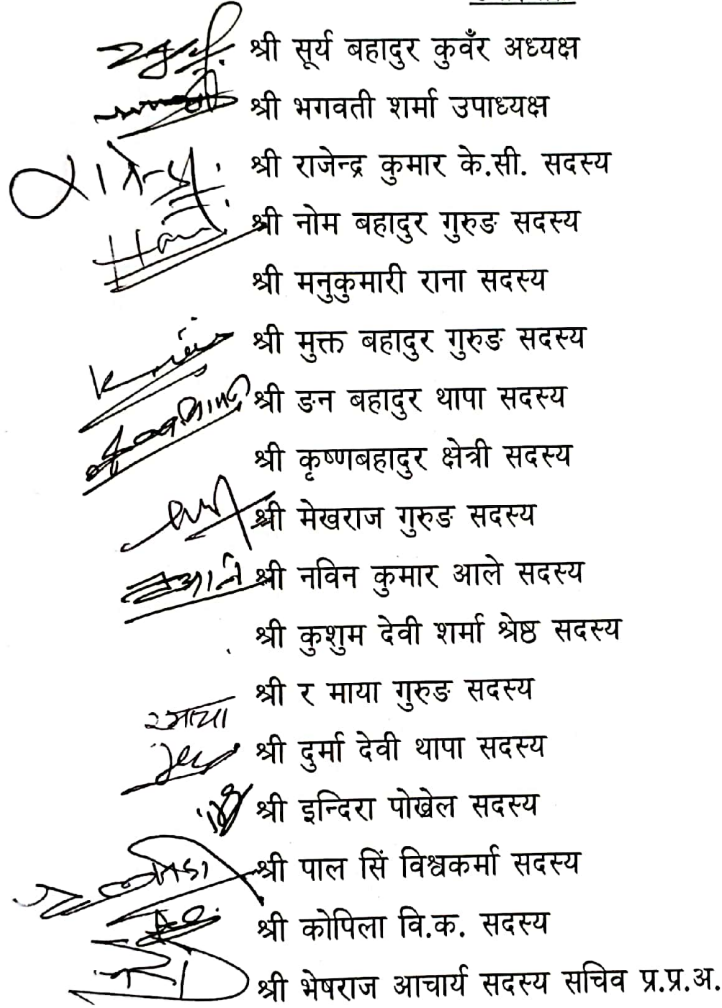 श्री सूर्य बहादुर कुवँर अध्यक्ष
श्री भगवती शर्मा उपाध्यक्ष
श्री राजेन्द्र कुमार के.सी. सदस्य
श्री नोम बहादुर गुरुङ सदस्य
श्री मनुकुमारी राना सदस्य
श्री मुक्त बहादुर गुरुङ सदस्य
श्री ङन बहादुर थापा सदस्य
श्री कृष्णबहादुर क्षेत्री सदस्य
श्री मेखराज गुरुङ सदस्य
श्री नविन कुमार आले सदस्य
श्री कुशुम देवी शर्मा श्रेष्ठ सदस्य
श्री र माया गुरुङ सदस्य
श्री दुर्मा देवी थापा सदस्य
श्री इन्दिरा पोखेल सदस्य
श्री पाल सिं विश्वकर्मा सदस्य
श्री कोपिला वि.क. सदस्य
श्री भेषराज आचार्य सदस्य सचिव प्र.प्र.अ.